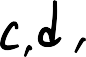 c, d,